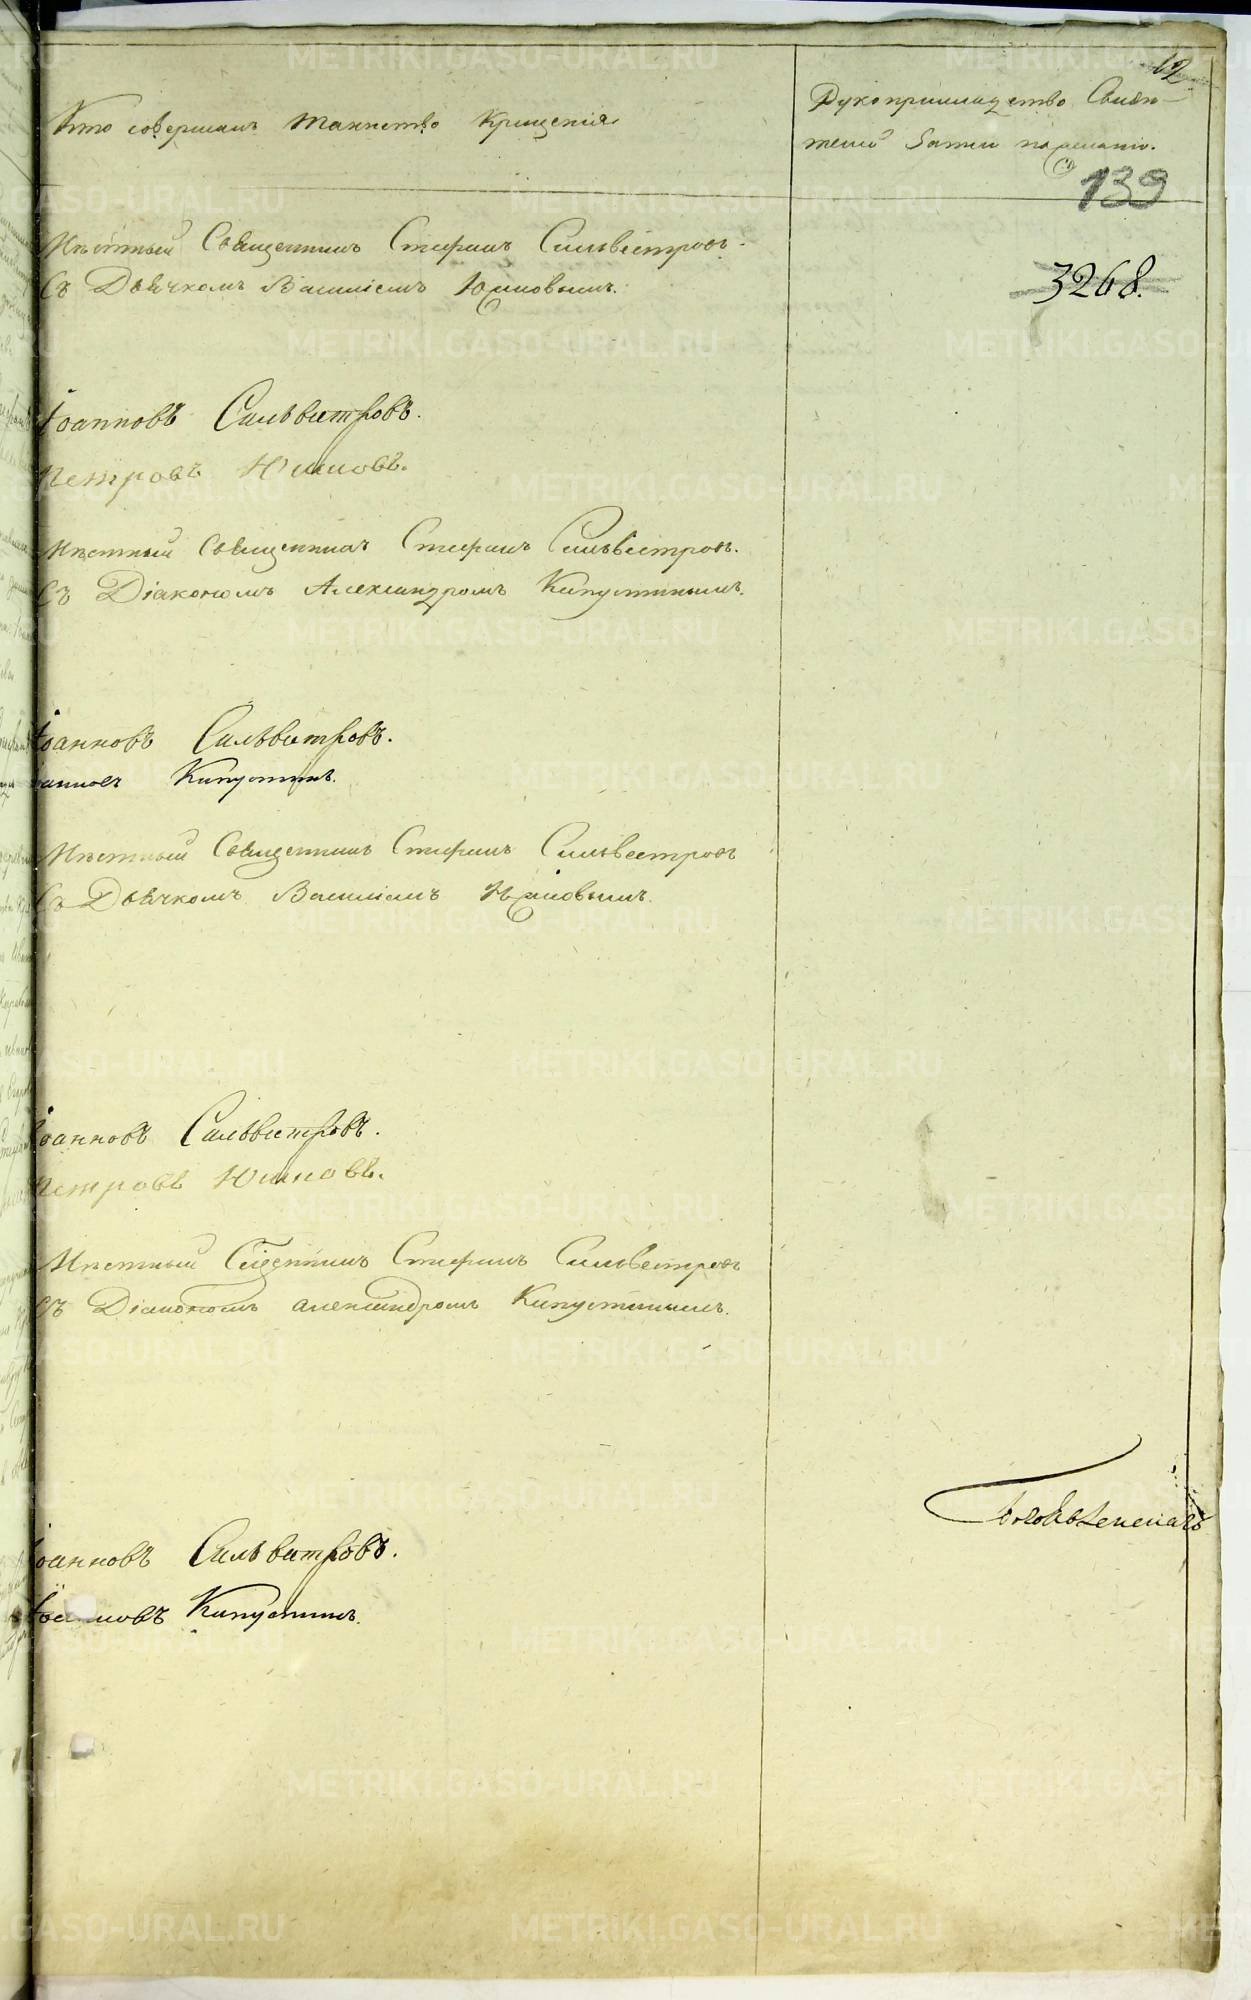 62
Кто совершалъ таинство Крещенія
Рукоприкладство Свидѣ-
телей Записи по желанію.
139
Мѣстный Священникъ Стефанъ Сильвестровъ.
Съ Дьячкомъ Василіемъ Юминовымъ.
3268.
Іоанновъ Сильвестровъ.
Петровъ Юминовъ.
Мѣстный Священникъ Стефанъ Сильвестровъ.
Съ Діакономъ Александромъ Капустинымъ.
Іоанновъ Сильвестровъ.
Капустинъ.
Мѣстный Священникъ Стефанъ Сильвестровъ
Съ Дьячкомъ Василіемъ Юминовымъ.
Іоанновъ Сильвестровъ.
Петровъ Юминовъ.
Мѣстный Сщенникъ Стефанъ Сильвестровъ
Съ Діакономъ Александромъ Капустинымъ.
Іоанновъ Сильвестровъ.
Іоанновъ Капустинъ.